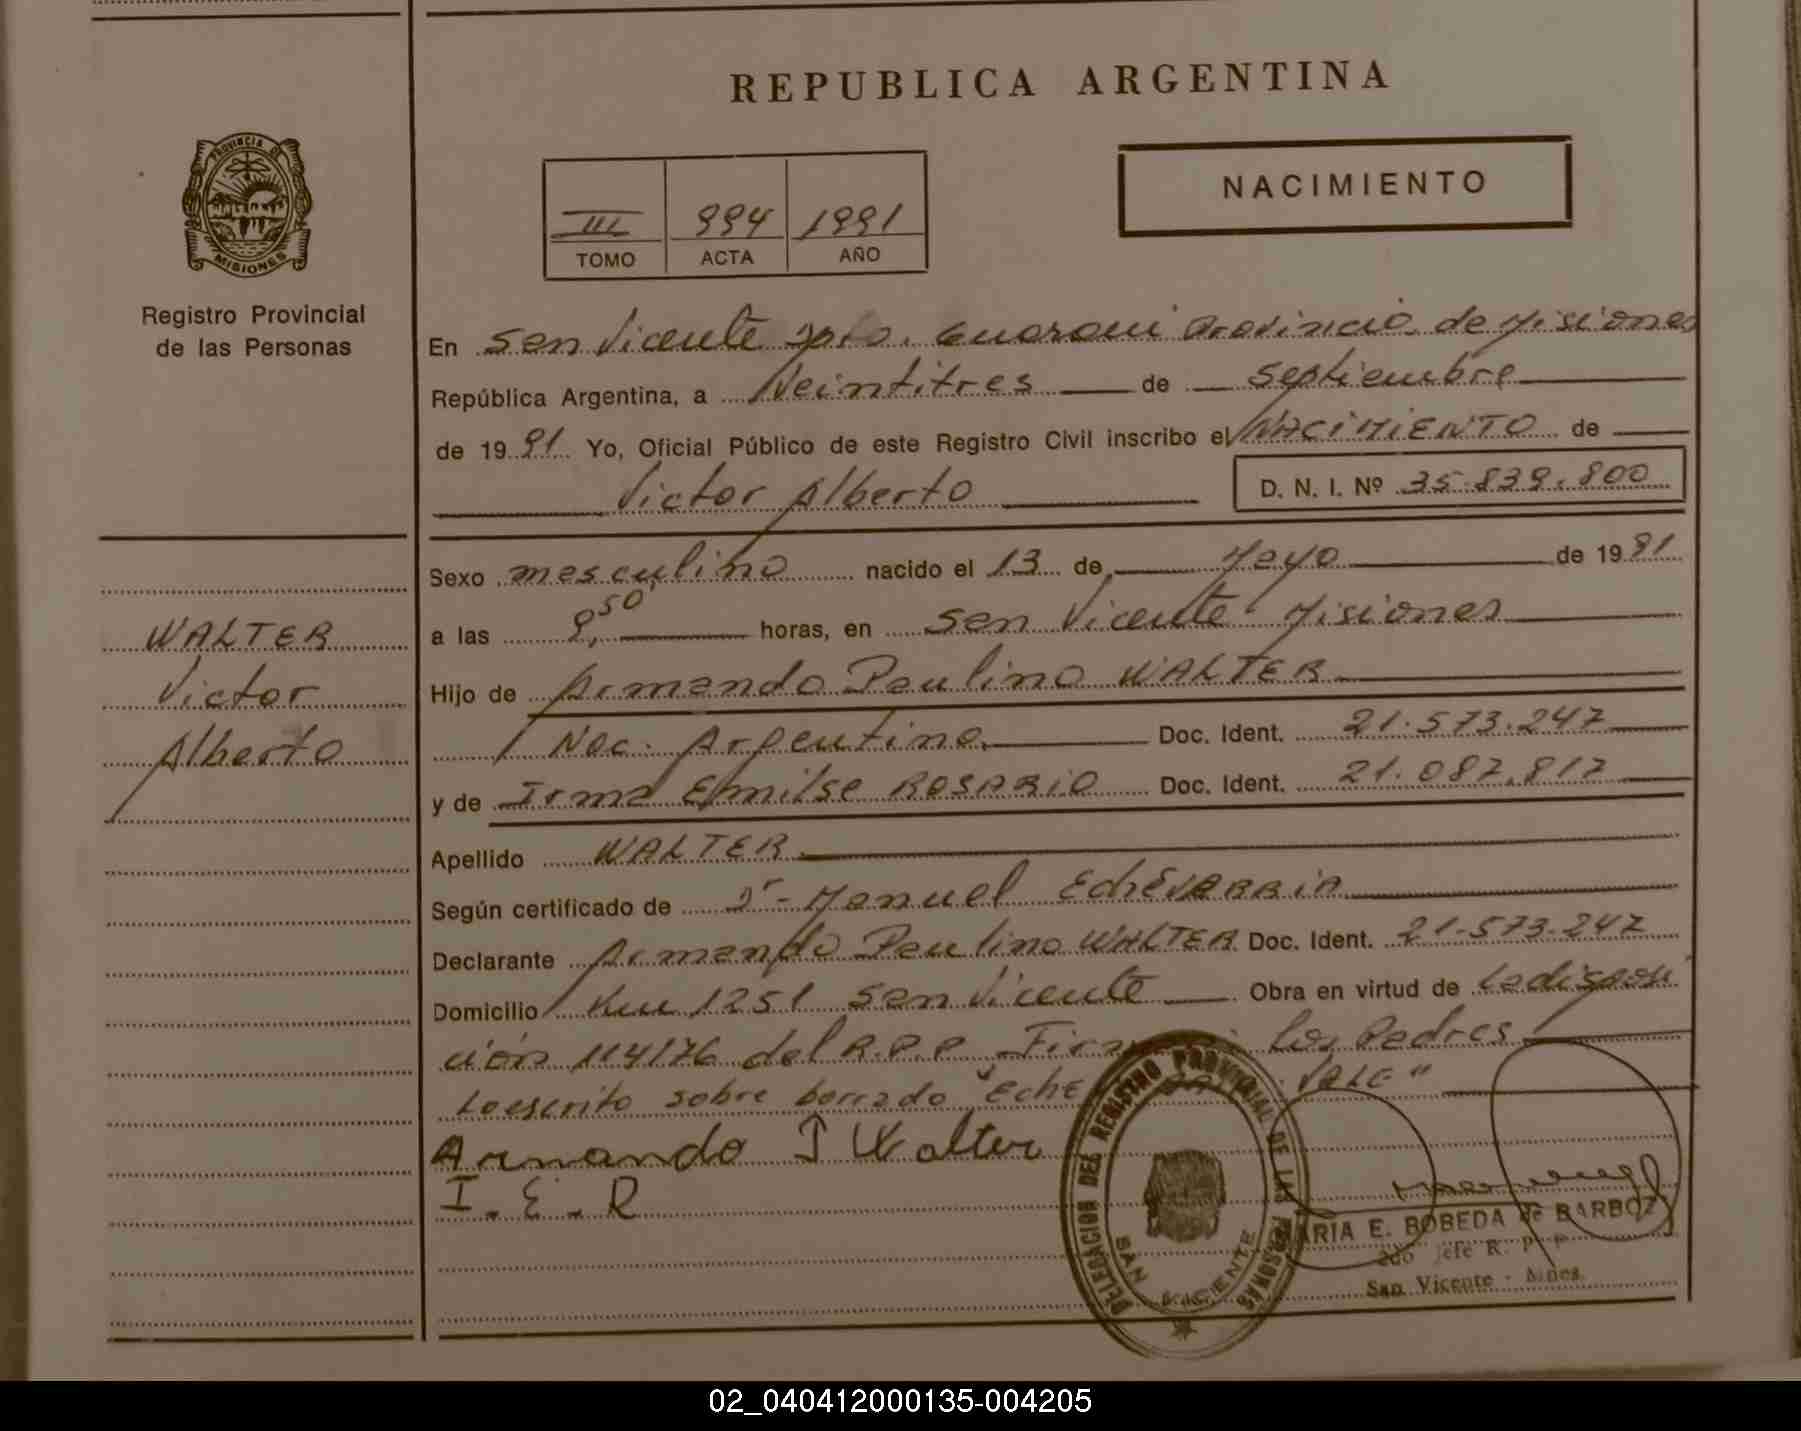 REPUBLICA ARGENTINA
PROVINCIA DE
MISIONES
Registro Provincial
de las Personas
NACIMIENTO
III 994 1991
TOMO ACTA AÑO
En San Vicente Dpto. Guarani Provincia de Misiones
República Argentina, a Veintitres de Septiembre
de 1991 Yo, Oficial Público de este Registro Civil inscribo el NACIMIENTO de
Victor Alberto D. N. I. Nº 35.839.800
Sexo masculino nacido el 13 de Mayo de 1991
a las 9,50 horas, en San Vicente Misiones
Hijo de Armando Paulino WALTER
Nac. Argentina Doc. Ident. 21.573.247
y de Irma Emilse ROSARIO Doc. Ident. 21.087.817
Apellido WALTER
Según certificado de Dr- Manuel EchEVARRIA
Declarante Armando Paulino WALTER Doc. Ident. 21-573-247
Domicilio Km 1251 San Vicente Obra en virtud de La disposi
ción 114176 del R.P.P. Los Padres
Lo escrito sobre borrado "Eche VALE"
WALTER
Victor
Alberto
Armando P Walter
I. E. R
DELEGACION DEL REGISTRO PROVINCIAL DE LAS PERSONAS
SAN VICENTE
MARIA E. BOBEDA de BARBOZA
2do Jefe R. P. P
San Vicente - Mnes.
02_040412000135-004205